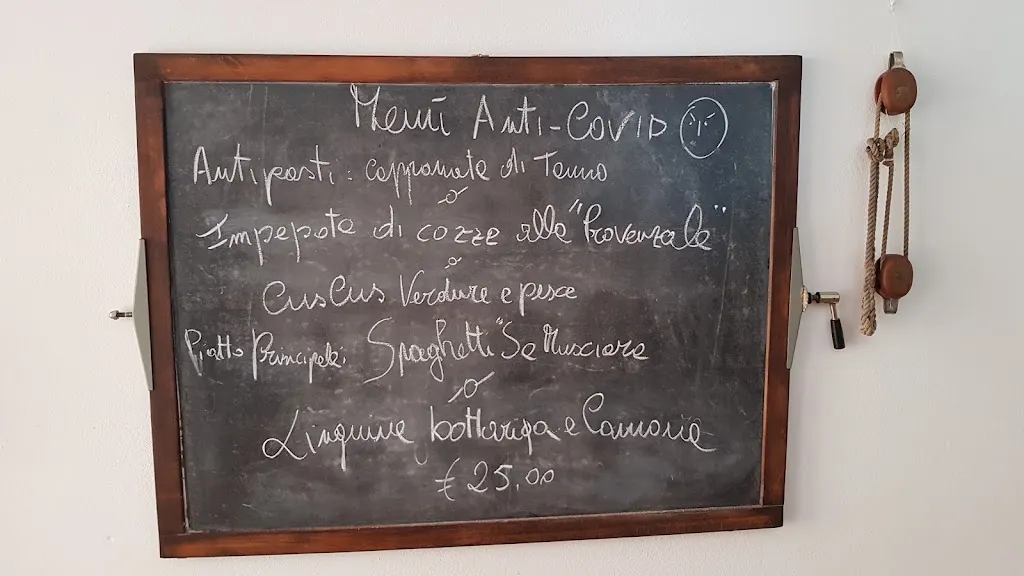 Menù Anti-COVID
Antipasti: capponata di Tonno
o
Impepata di cozze alla "Provenzale"
o
CusCus Verdure e pesce
Piatto Principale: Spaghetti "Sa Musciara
o
Linguine bottariga e Camone
€ 25,00